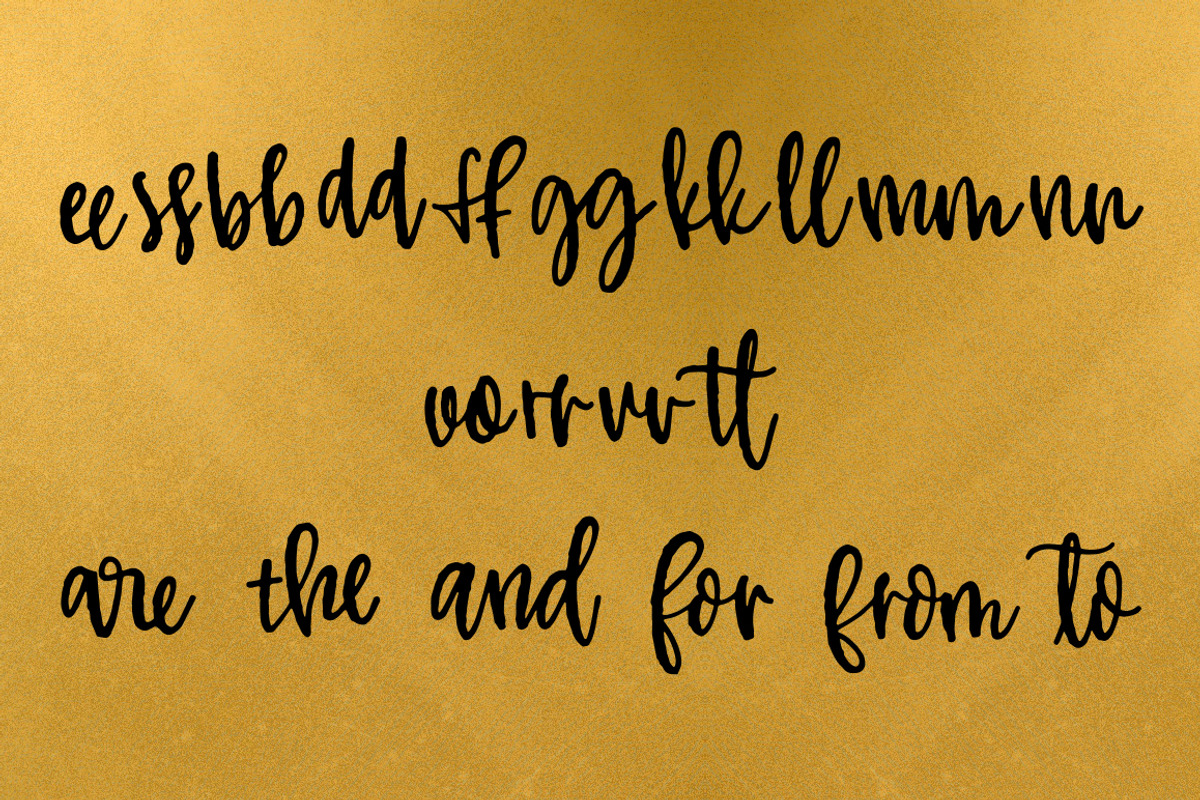 eessbbddffggkkllmmnn
oorrvvtt
are the and for from to